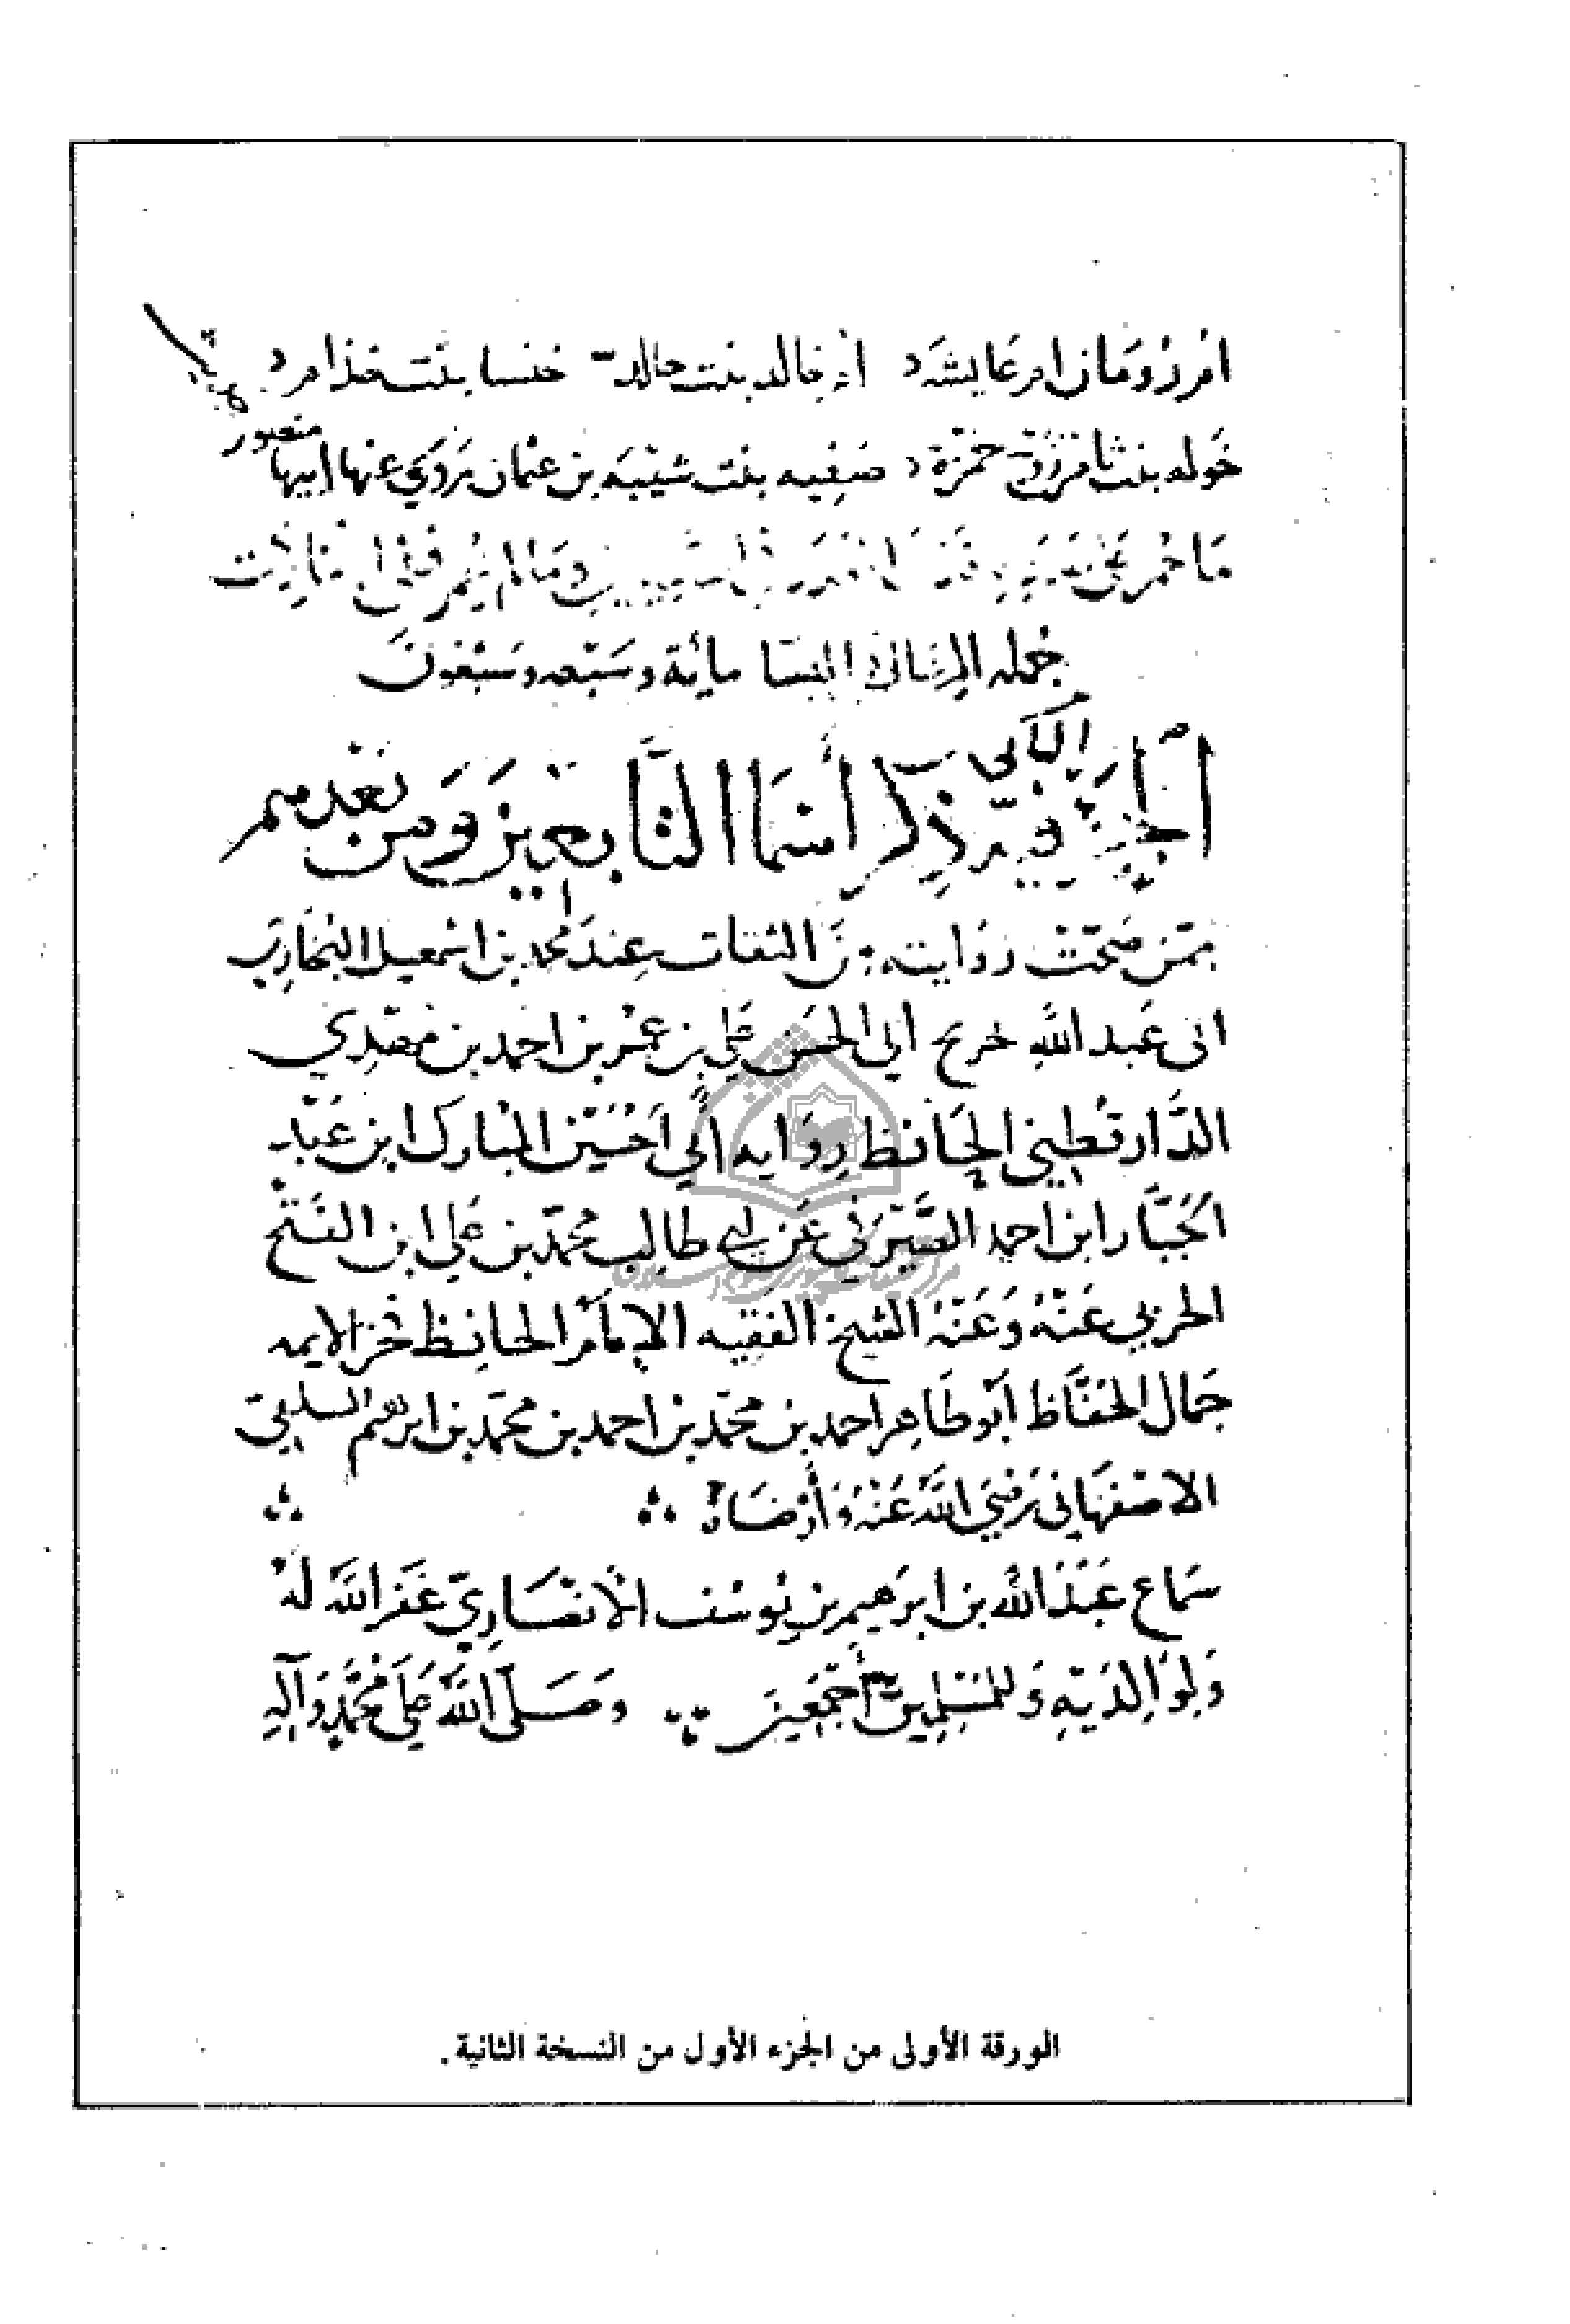 ام رومان ام عايشه د ام خالد بنت خالد خنسا بنت خذام د
خوله بنت ثامر زوج حمزة د صفيه بنت شيبه بن عثمان روى عنها ابنها
منصور
جمله النسا مائة وسبعه وسبعون
الجزء فيه ذكر أسما التابعين ومن بعدهم
ممن صحت روايته من الثقات عند محمد بن اسمعيل البخاري
ابى عبد الله خرج ابي الحسن علي بن عمر بن احمد بن مهدي
الدارقطني الحافظ روايه أبي احسين المبارك ابن عبد
الجبار ابن احمد الصيرفي عن ابي طالب محمد بن علي ابن الفتح
الحربي عنه وعنه الشيخ الفقيه الإمام الحافظ فخر الايمه
جمال الحفاظ أبو طاهر احمد بن محمد بن احمد بن محمد بن ابرهيم السلفي
الاصفهاني رضي الله عنه وأرضاه
سماع عبد الله بن ابرهيم بن يوسف الأنصاري غفر الله له
ولوالديه وللمسلمين أجمعين وصلى الله على محمد وآله
الورقة الأولى من الجزء الأول من النسخة الثانية .